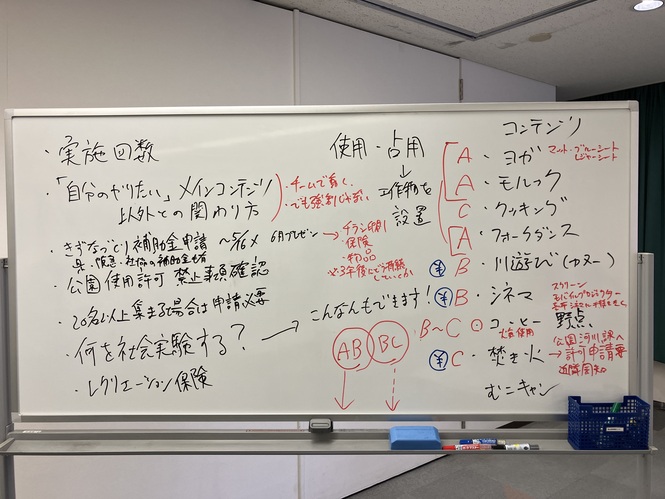 ・実施回数
・「自分のやりたい」メインコンテンツ
以外との関わり方
・チームで動く、
・でも強制じゃない
・きずなづくり補助金申請 〜5/6〆 6月プレゼン
→チラシ刷り
・保険
・物品
・公園使用許可 禁止事項確認
・20名以上集まる場合は申請必要
・何を社会実験する？→こんなんもできます！
・レクリエーション保険
使用・占用
↓
工作物を
設置
AB BC
コンテンツ
A・ヨガ マット・ブルーシート
レジャーシート
A・モルック
C・クッキング
A・フォークダンス
¥ B・川遊び（カヌー）
¥ B・シネマ
スクリーン
モバイルプロジェクター
B〜C ⊙ コーヒー 野点
火気使用
¥ C・焚き火 → 公園河川課へ
許可申請要
近隣周知
むこキャン